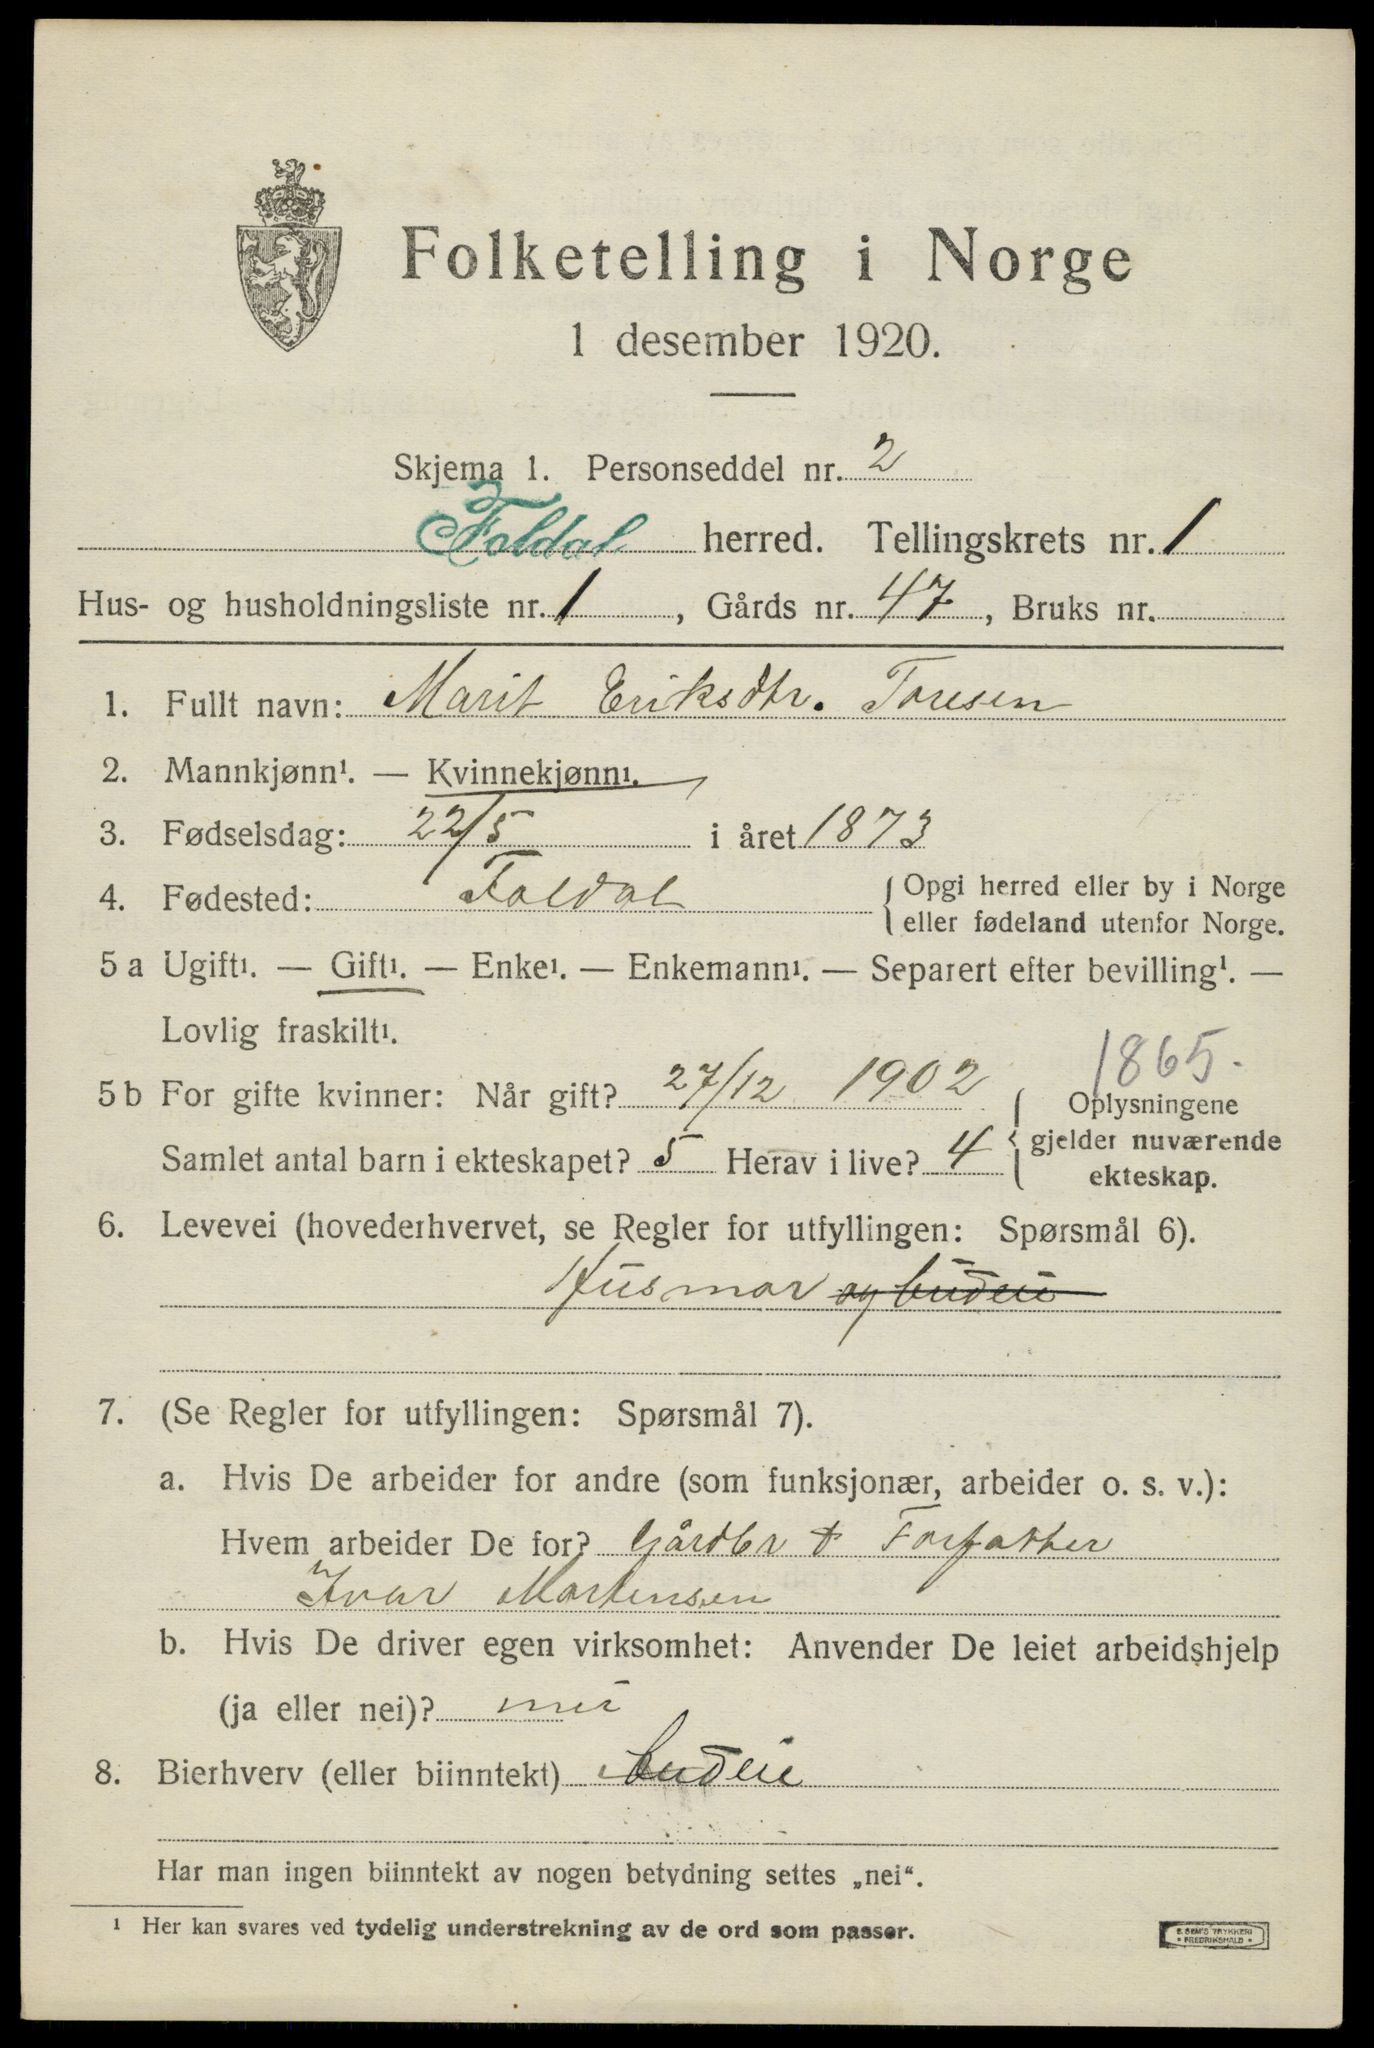 Folketelling i Norge
1 desember 1920.
Skjema 1. Personseddel nr. 2
Foldal herred. Tellingskrets nr. 1
Hus- og husholdningsliste nr. 1, Gårds nr. 47, Bruks nr.
1. Fullt navn: Marit Eriksdtr. Toresen
2. Mannkjønn¹. — Kvinnekjønn¹.
3. Fødselsdag: 22/5 i året 1873
4. Fødested: Foldal { Opgi herred eller by i Norge
eller fødeland utenfor Norge.
5 a Ugift¹. — Gift¹. — Enke¹. — Enkemann¹. — Separert efter bevilling¹. —
Lovlig fraskilt¹.
1865.
5 b For gifte kvinner: Når gift? 27/12 1902
Samlet antal barn i ekteskapet? 5 Herav i live? 4
{ Oplysningene
gjelder nuværende
ekteskap.
6. Levevei (hovederhvervet, se Regler for utfyllingen: Spørsmål 6).
Husmor og budeie
7. (Se Regler for utfyllingen: Spørsmål 7).
a. Hvis De arbeider for andre (som funksjonær, arbeider o. s. v.):
Hvem arbeider De for? Gårdbr & Forfatter
Ivar Mortensen
b. Hvis De driver egen virksomhet: Anvender De leiet arbeidshjelp
(ja eller nei)? nei
8. Bierhverv (eller biinntekt) budeie
Har man ingen biinntekt av nogen betydning settes „nei“.
¹ Her kan svares ved tydelig understrekning av de ord som passer.
E. SEM'S TRYKKERI
• FREDRIKSHALD •